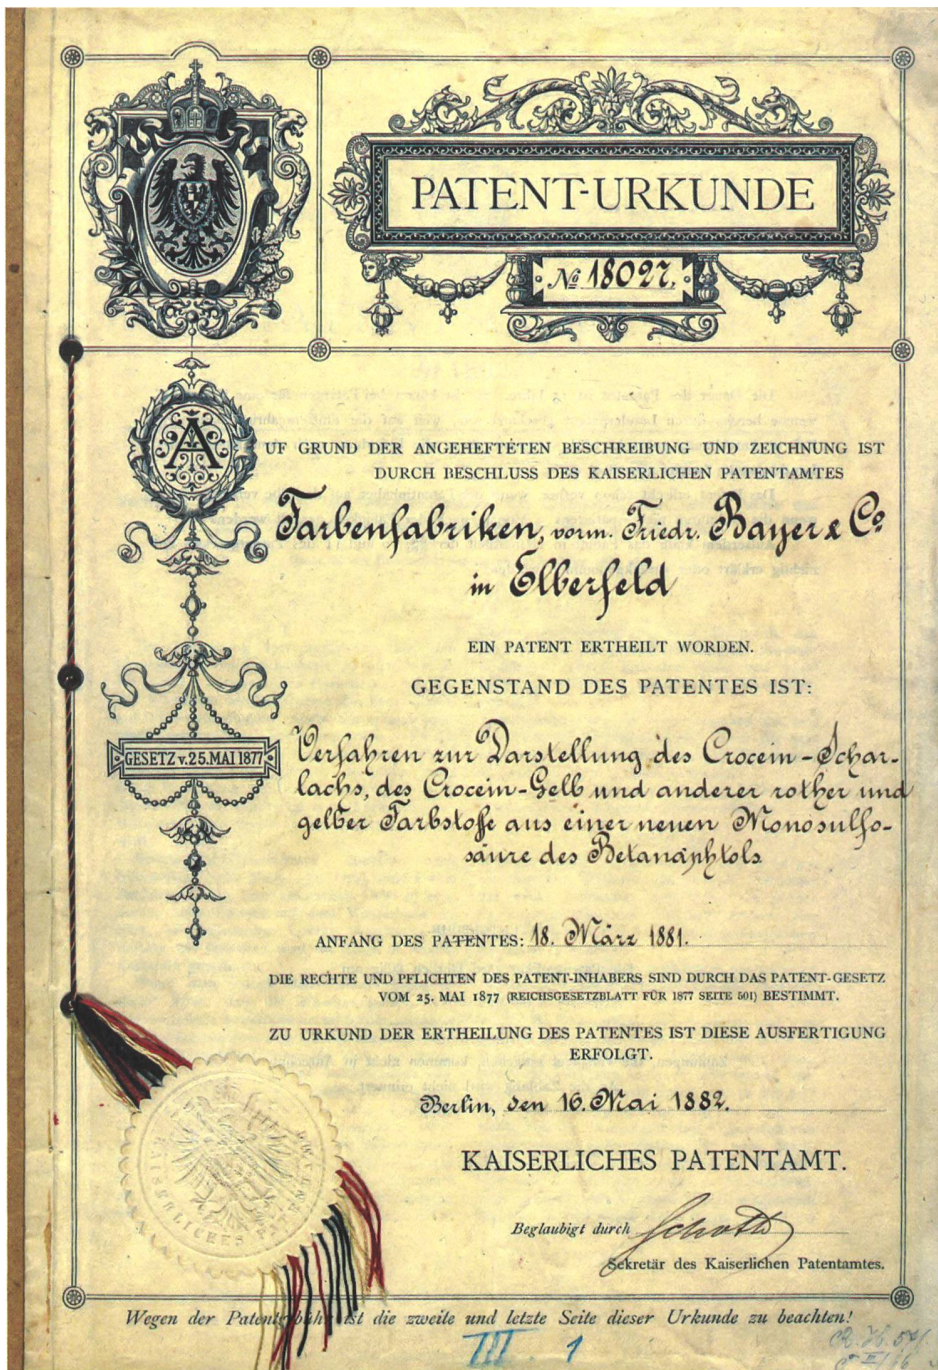 PATENT-URKUNDE
№ 18027.
AUF GRUND DER ANGEHEFTETEN BESCHREIBUNG UND ZEICHNUNG IST
DURCH BESCHLUSS DES KAISERLICHEN PATENTAMTES
Farbenfabriken, vorm. Friedr. Bayer & Co
in Elberfeld
EIN PATENT ERTHEILT WORDEN.
GEGENSTAND DES PATENTES IST:
GESETZ v. 25. MAI 1877
Verfahren zur Darstellung des Crocein-Schar-
lachs, des Crocein-Gelb und anderer rother und
gelber Farbstoffe aus einer neuen Monosulfo-
säure des Betanaphtols
ANFANG DES PATENTES: 18. März 1881.
DIE RECHTE UND PFLICHTEN DES PATENT-INHABERS SIND DURCH DAS PATENT-GESETZ
VOM 25. MAI 1877 (REICHSGESETZBLATT FÜR 1877 SEITE 501) BESTIMMT.
ZU URKUND DER ERTHEILUNG DES PATENTES IST DIESE AUSFERTIGUNG
ERFOLGT.
Berlin, den 16. Mai 1882.
KAISERLICHES PATENTAMT.
KAISERLICHES PATENTAMT
Beglaubigt durch
Sekretär des Kaiserlichen Patentamtes.
Wegen der Patentgebühr ist die zweite und letzte Seite dieser Urkunde zu beachten!
III 1